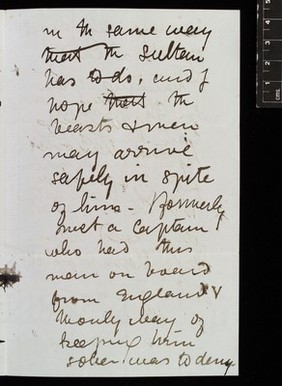 in the same way
that the Sultan
has to do, and I
hope that the
beasts & men
may arrive
safely in spite
of him - Formerly
met a Captain
who had this
man on board
from England &
the only way of
keeping him
sober was to deny